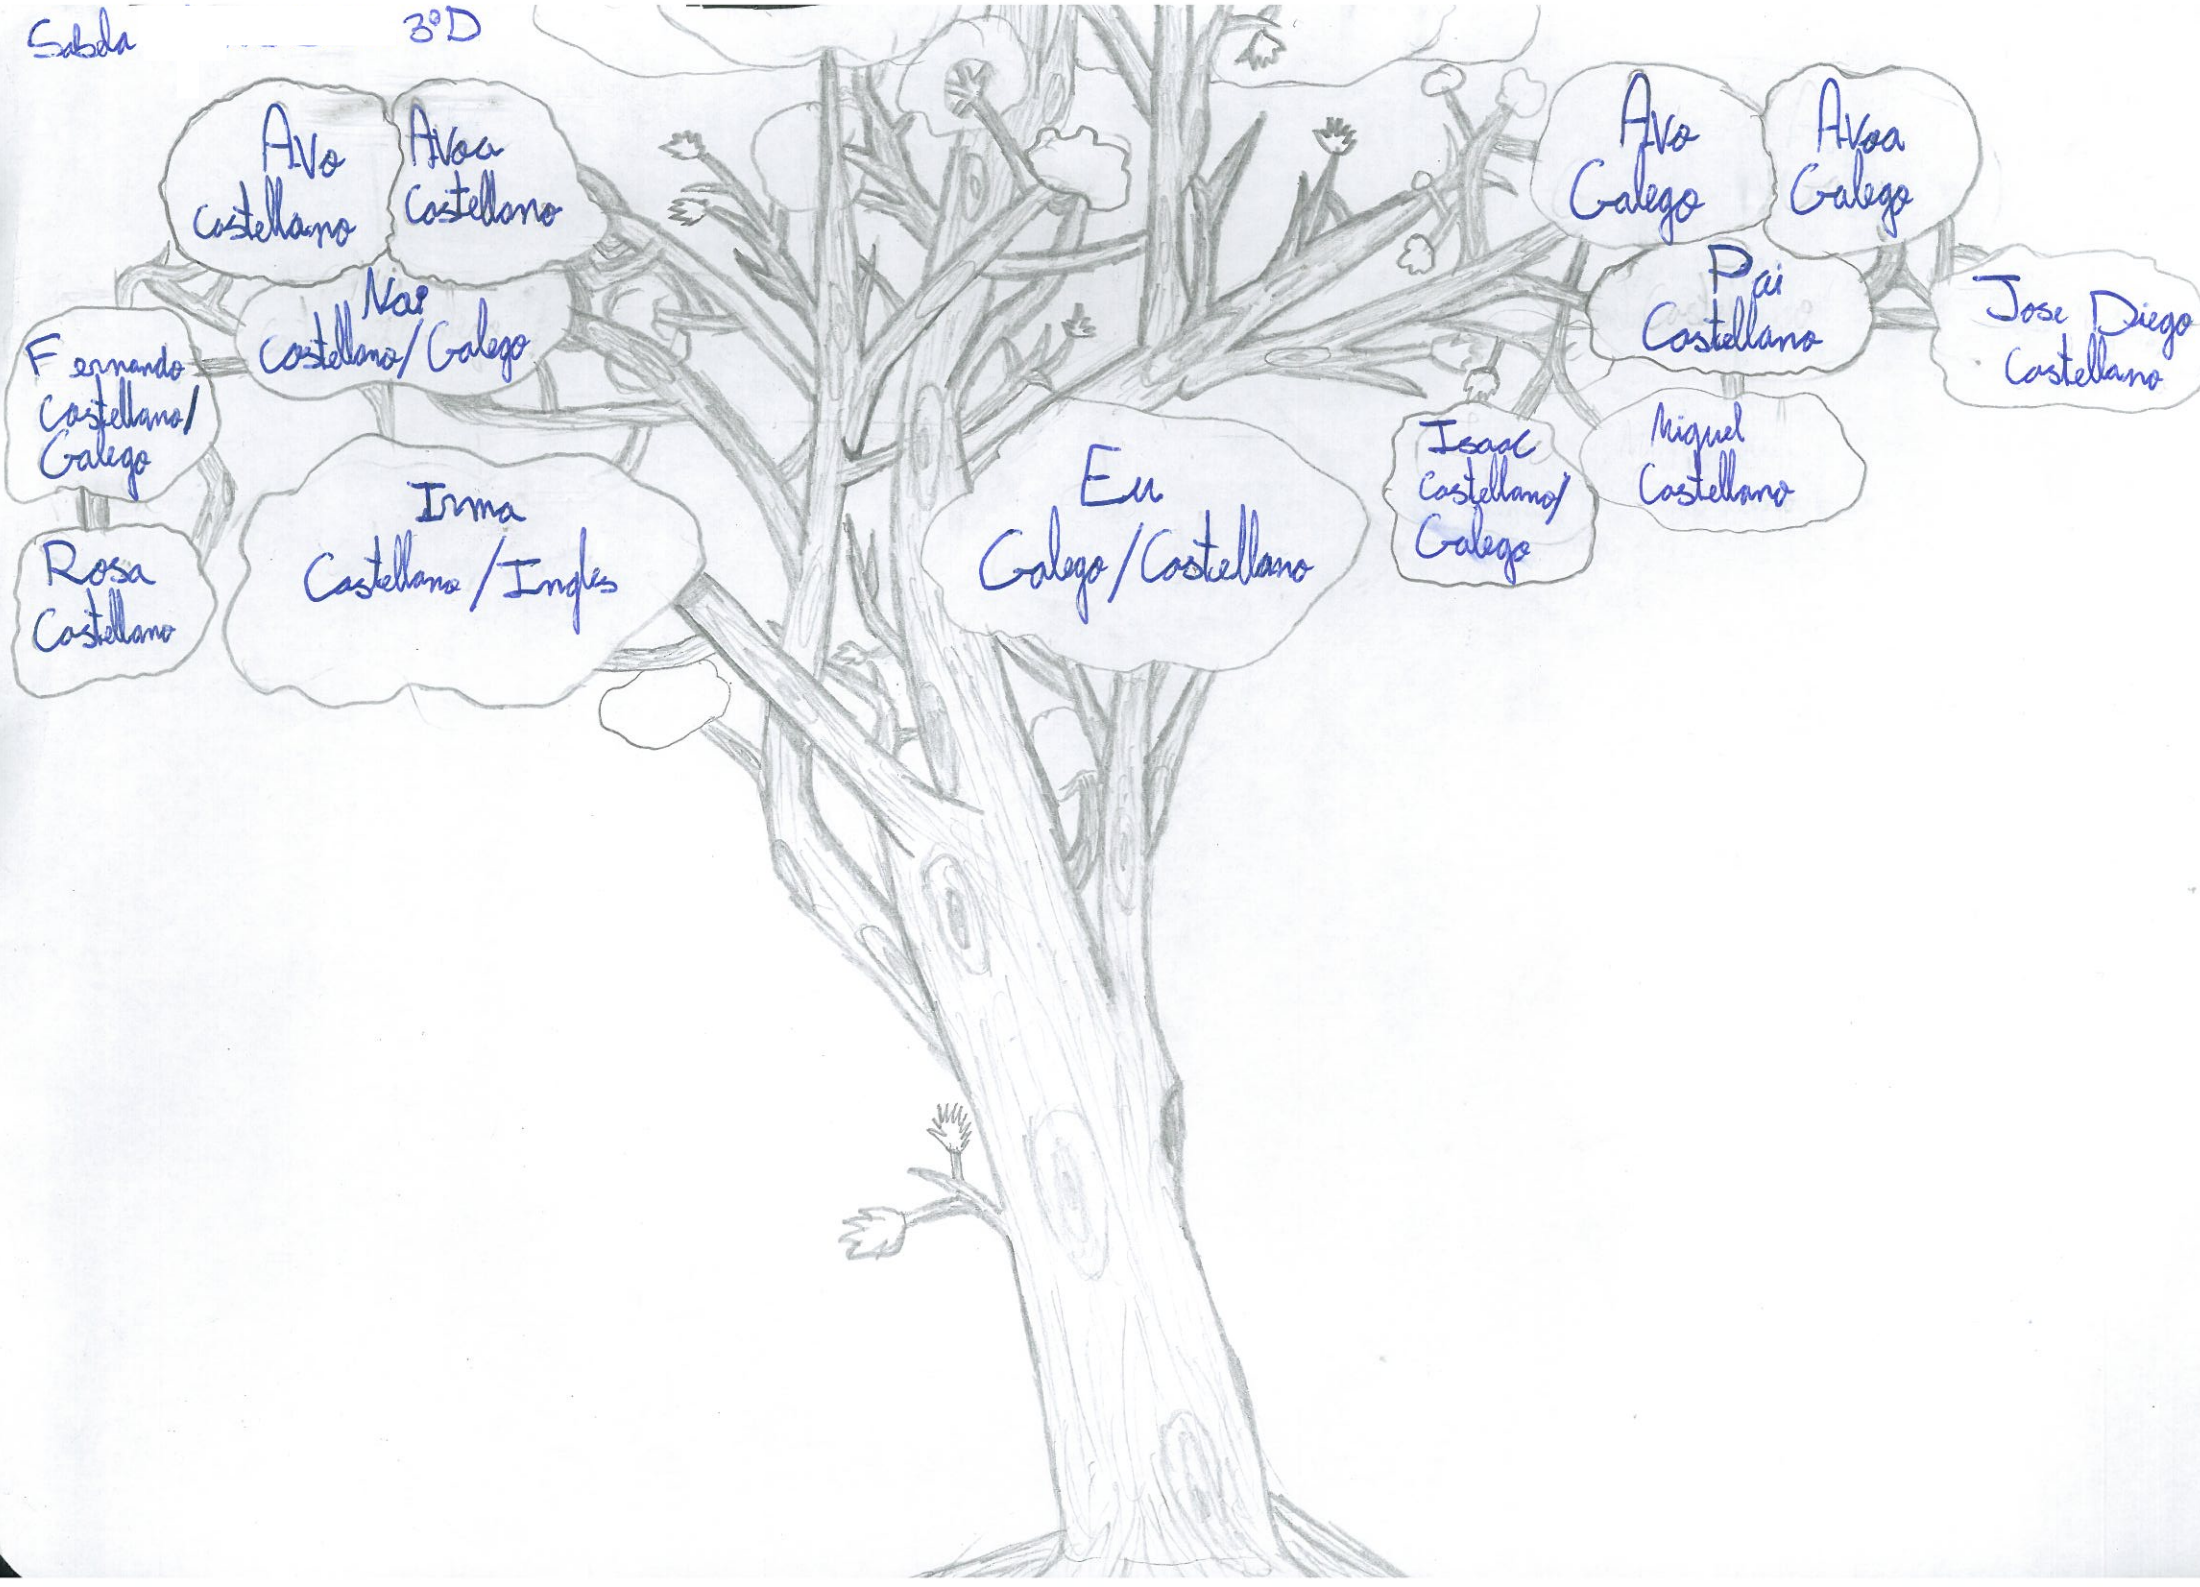 Sabela 3ºD
Avo
Castellano
Avoa
Castellano
Nai
Castellano/Galego
Fernando
Castellano/
Galego
Rosa
Castellano
Irma
Castellano/Ingles
Eu
Galego/Castellano
Avo
Galego
Avoa
Galego
Pai
Castellano
Jose Diego
Castellano
Isaac
Castellano/
Galego
Miguel
Castellano